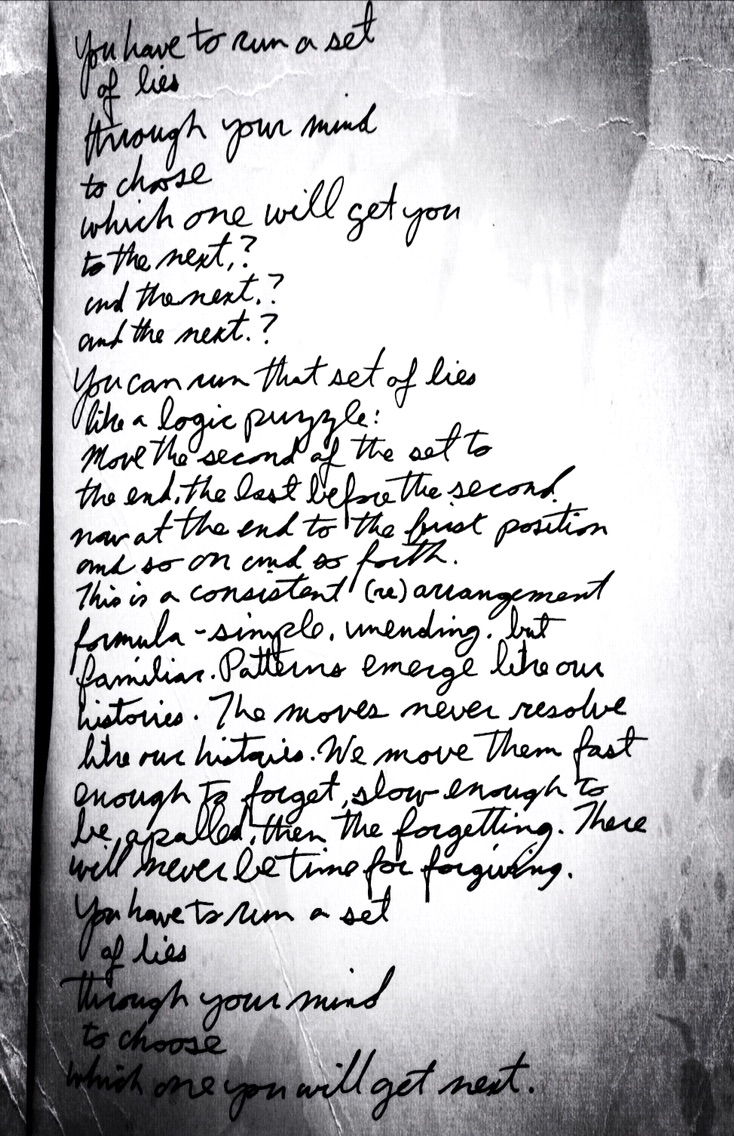 You have to run a set
of lies
through your mind
to choose
which one will get you
to the next,?
and the next,?
and the next.?
You can run that set of lies
like a logic puzzle:
Move the second of the set to
the end, the last before the second,
now at the end to the first position
and so on and so forth.
This is a consistent (re)arrangement
formula - simple, unending, but
familiar. Patterns emerge like our
histories. The moves never resolve
like our histories. We move them fast
enough to forget, slow enough to
be apalled, then the forgetting. There
will never be time for forgiving.
You have to run a set
of lies
through your mind
to choose
which one you will get next.